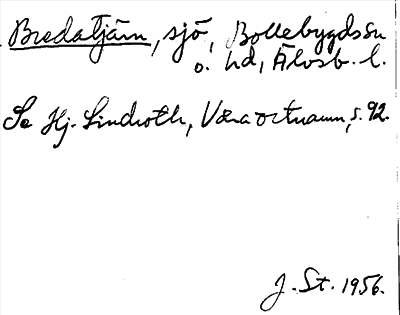 Bredatjärn, sjö, Bollebygds sn
o. hd, Älvsb. l.
Se Hj. Lindroth, Våra ortnamn, s. 92.
J. St. 1956.